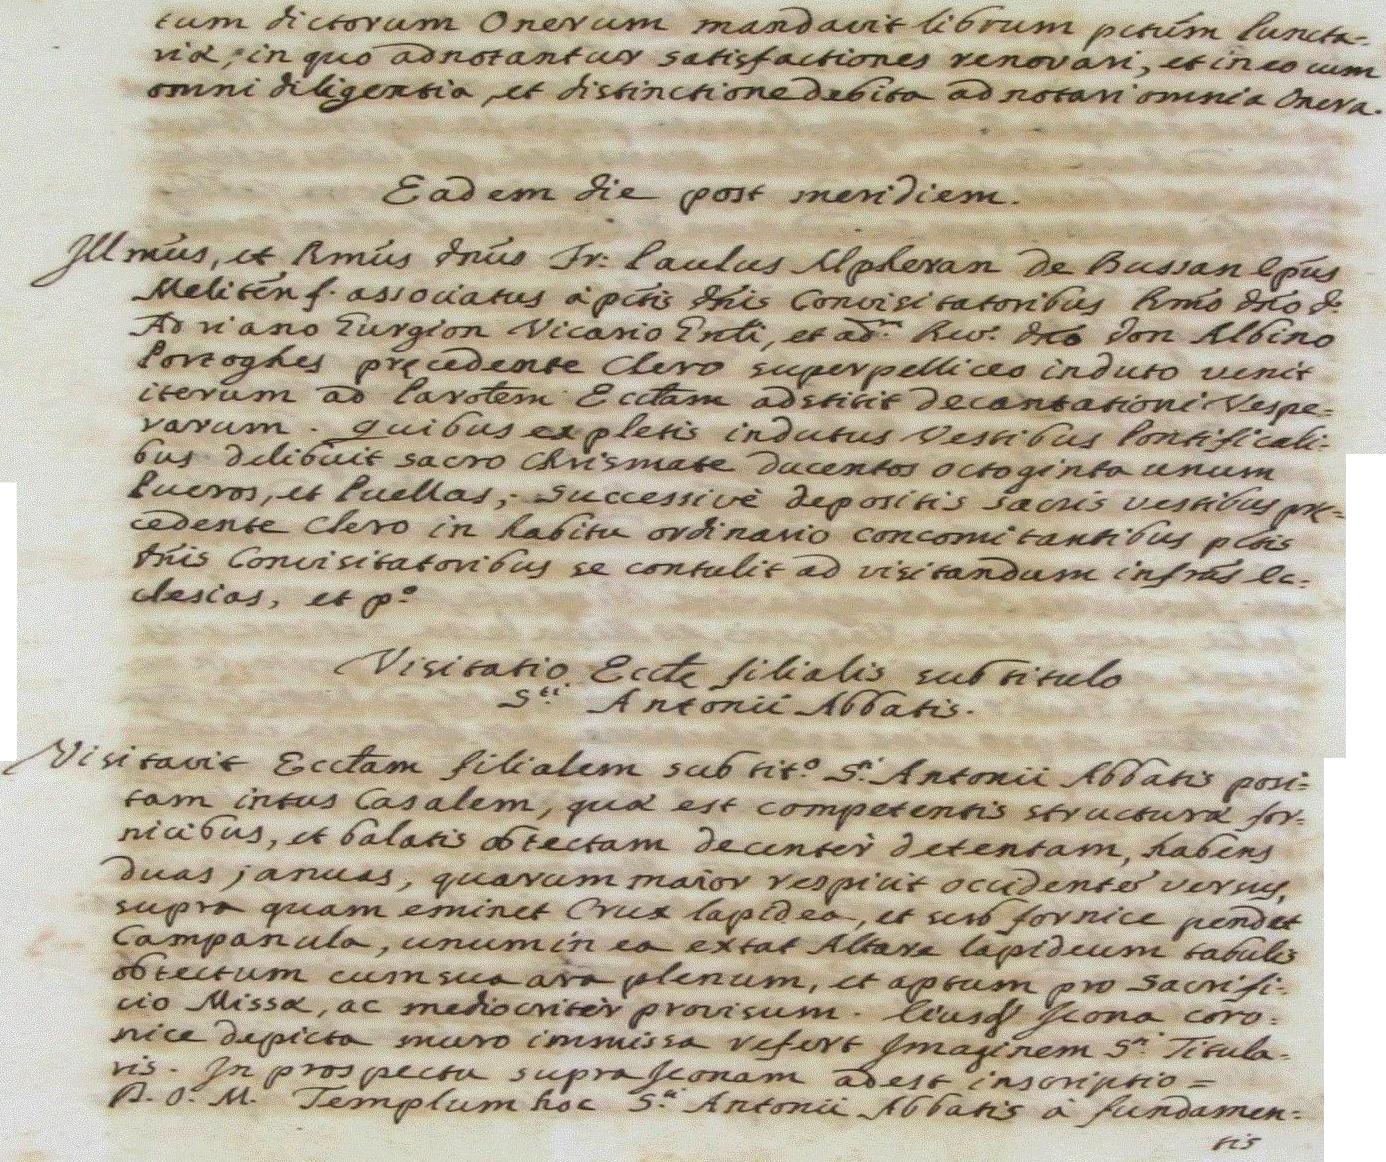 tum dictorum Onerum mandavit librum pctum Puncta-
riæ, in quo adnotantur satisfactiones renovari, et in eo cum
omni diligentia, et distinctione debita adnotari omnia Onera.
Eadem die post meridiem.
Illmus, et Rmus Dnus Fr: Paulus Alpheran de Bussan Epus
Meliten s. associatus à pctis Dnis Convisitatoribus Rmo Dno D.
Adriano Gurgion Vicario Gnli, et adm. Rev. Dno Don Albino
Portoghes pręcedente Clero superpellicco induto venit
iterum ad Parolem Ecclam adstitit decantationi Vespe=
rarum. Quibus expletis indutus Vestibus Pontificali-
bus delibuit sacro Chrismate ducentos octoginta unum
Pueros, et Puellas; Successivè depositis sacris vestibus prę-
cedente Clero in habitu ordinario concomitantibus pctis
Dnis Convisitatoribus se contulit ad visitandum infras Ec-
clesias, et p.º
Visitatio Eccle filialis sub titulo
S.ti Antonii Abbatis.
Visitavit Ecclam filialem sub tit.º S.ti Antonii Abbatis posi=
tam intus Casalem, quæ est competentis structuræ for-
nicibus, et balatis obtectam decentèr detentam, habens
duas januas, quarum maior respicit occidente versus,
supra quam eminet Crux lapidea, et sub fornice pendet
Campanula, unum in ea extat Altare lapideum tabulis
obtectum cum sua ara plenum, et aptum pro Sacrifi-
cio Missæ, ac mediocritèr provisum. Eiusq Icona coro=
nice depicta muro immissa refert Imaginem S.ti Titula-
ris. In prospectu supra Iconam adest inscriptio=
D. O. M. Templum hoc S.ti Antonii Abbatis à fundamen=
tis